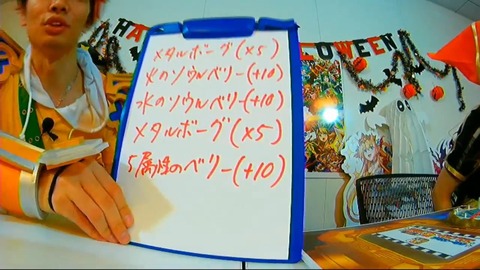 HA
LLOWEEN
メタルボーグ(×5)
火のソウルベリー(+10)
水のソウルベリー(+10)
メタルボーグ(×5)
5属性のベリー(+10)